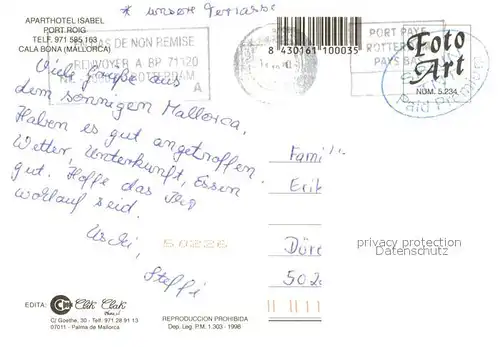 * unsere Terrasse
APARTHOTEL ISABEL
PORT ROIG
TELF. 971 585 163
CALA BONA (MALLORCA)
CAS DE NON REMISE
RENVOYER A BP 71120
ROTTERDAM
A
8 430161 100035
PORT PAYE
ROTTERDAM
PAYS BAS
Foto
Art
NÚM. 5.234
Paid Premium
Viele Grüße aus
dem sonnigen Mallorca.
Haben es gut angetroffen.
Wetter, Unterkunft, Essen
gut. Hoffe das Ihr
wohlauf seid.
Uschi,
Steffi
Famili
Erik
Düre
502
50226
privacy protection
Datenschutz
EDITA:
Clik Clak
C/ Goethe, 30 - Telf: 971 28 91 13
07011 - Palma de Mallorca
REPRODUCCION PROHIBIDA
Dep. Leg. P.M. 1.303 - 1998